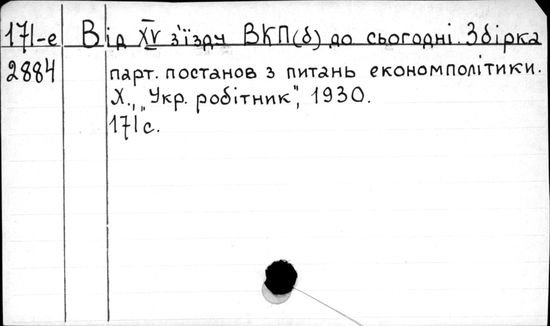 171-е Від XV з'їзду ВКП(б) до сьогодні. Збірка
2884 парт. постанов з питань економполітики.
Х., „Укр. робітник", 1930.
171 с.